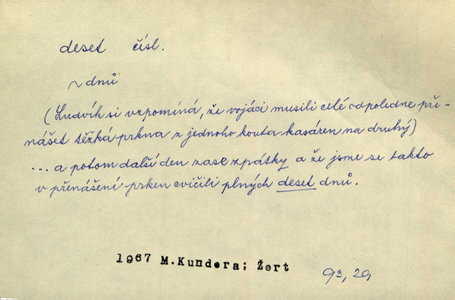 deset čísl.
~ dnů
(Ludvík si vzpomíná, že vojáci musili celé odpoledne při-
nášet těžká prkna z jednoho kouta kasáren na druhý)
... a potom další den zase zpátky a že jsme se takto
v přenášení prken cvičili plných deset dnů.
1967 M.Kundera; Žert
93, 29